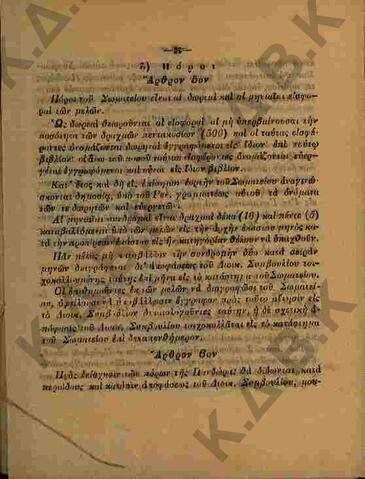 γ) Πόροι
Ἄρθρον 5ον
Πόροι τοῦ Σωματείου εἶναι αἱ δωρεαὶ καὶ αἱ μηνιαῖαι εἰσφο-
ραὶ τῶν μελῶν.
Ὡς δωρεαὶ θεωροῦνται αἱ εἰσφοραὶ αἱ μὴ ὑπερβαίνουσαι τὴν
ποσότητα τῶν δραχμῶν πεντακοσίων (500) καὶ οἱ ταύτας εἰσφέ-
ροντες ὀνομάζονται δωρηταὶ ἐγγραφόμενοι εἰς ἴδιον ἐπὶ τούτῳ
βιβλίον· οἱ ἄνω τοῦ ποσοῦ τούτου εἰσφέροντες ὀνομάζονται εὐερ-
γέται ἐγγραφόμενοι καὶ οὗτοι εἰς ἴδιον βιβλίον.
Κατ' ἔτος καὶ δὴ εἰς ἐπίσημον ἑορτὴν τοῦ Σωματείου ἀναγινώ-
σκονται δημοσίᾳ, ὑπὸ τοῦ Γεν. γραμματέως αὐτοῦ τὰ ὀνόματα
τῶν τε δωρητῶν καὶ εὐεργετῶν.
Αἱ μηνιαῖαι συνδρομαὶ εἶναι δραχμαὶ δέκα (10) καὶ πέντε (5)
καταβαλλόμεναι ὑπὸ τῶν μελῶν εἰς τὴν ἀρχὴν ἑκάστου μηνὸς κα-
τὰ τὴν προαίρεσιν ἑκάστου εἰς ἣν κατηγορίαν θέλουν νὰ ὑπαχθοῦν.
Πᾶν μέλος μὴ καταβάλλον τὴν συνδρομήν του κατὰ σειρὰν
μηνῶν διαγράφεται δι' ἀποφάσεως τοῦ Διοικ. Συμβουλίου τοι-
χοκολλουμένης ταύτης ἐπὶ μῆνα εἰς τὸ κατάστημα τοῦ Σωματείου.
Οἱ ἐπιθυμοῦντες ἐκ τῶν μελῶν νὰ διαγραφῶσι τοῦ Σωματεί-
ου, ὀφείλουσι νὰ ὑποβάλλωσι ἔγγραφον πρὸς τοῦτο αἴτησιν εἰς
τὸ Διοικ. Συμβούλιον δικαιολογοῦντες ταύτην, ἡ δὲ σχετικὴ ἀ-
πόφασις τοῦ Διοικ. Συμβουλίου τοιχοκολλᾶται εἰς τὸ κατάστημα
τοῦ Σωματείου ἐπὶ δεκαπενθήμερον.
Ἄρθρον 6ον
Πρὸς ἐνίσχυσιν τῶν πόρων τῆς Πανδώρας θὰ δίδωνται, κατὰ
περιόδους καὶ κατόπιν ἀποφάσεως τοῦ Διοικ. Συμβουλίου, μου-
Κ.Δ.Β.Κ
Κ.Δ.Β.Κ